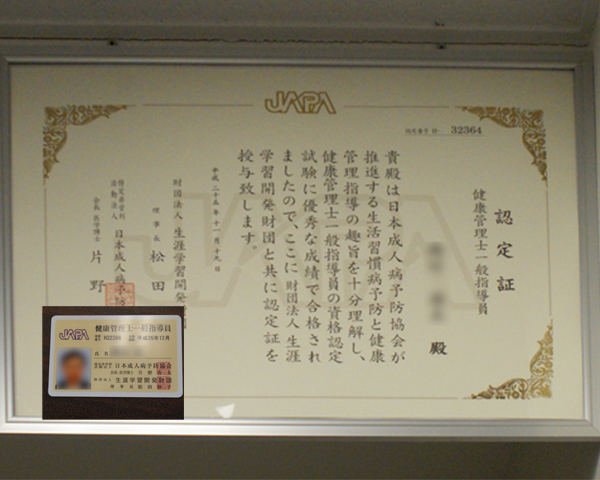 JAPA
認定番号 第 32364
認定証
健康管理士一般指導員
殿
貴殿は日本成人病予防協会が
推進する生活習慣病予防と健康
管理指導の趣旨を十分理解し、
健康管理士一般指導員の資格認定
試験に優秀な成績で合格され
ましたので、ここに財団法人生涯
学習開発財団と共に認定証を
授与致します。
平成二十五年十一月十九日
財団法人 生涯学習開発
理事長 松田
特定非営利
活動法人 日本成人病予防
会長 医学博士 片野
JAPA 健康管理士一般指導員
平成26年12月
氏名
日本成人病予防協会
生涯学習開発財団